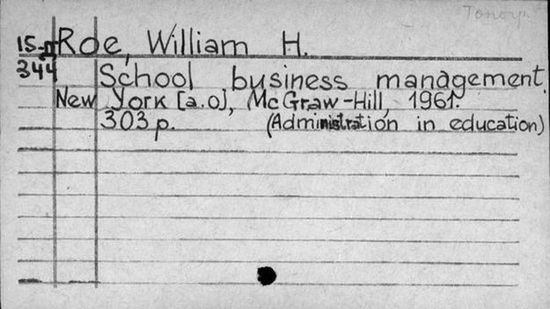 Топогр.
15-Д Roe, William H.
344 School business management.
New York [a.o], McGraw-Hill, 1961.
303 p. (Administration in education)